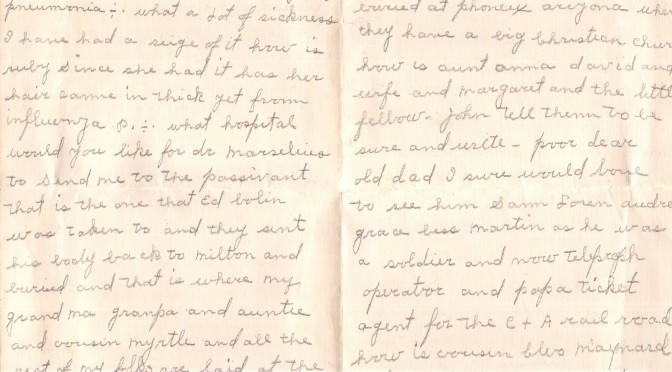 pneumonia ÷. what a lot of sickness
I have had a seige of it how is
ruby since she had it has her
hair came in thick yet from
influenza P. ÷. what hospital
would you like for dr marselius
to send me to the passivant
that is the one that Ed bolin
was taken to and they sent
his body back to milton and
buried and that is where my
grand ma granpa and auntie
and cousin myrtle and all the
rest of my folks are laid at the
buried at phoneix aryona where
they have a big Christian chur
how is aunt anna david and
wife and margaret and the littl
fellow- John Tell them to be
sure and write - poor dear
old dad I sure would love
to see him Sam Loren audre
grace bess martin as he was
a soldier and now
operator and papa ticket
agent for the C + A rail road
how is cousin cleo maynard